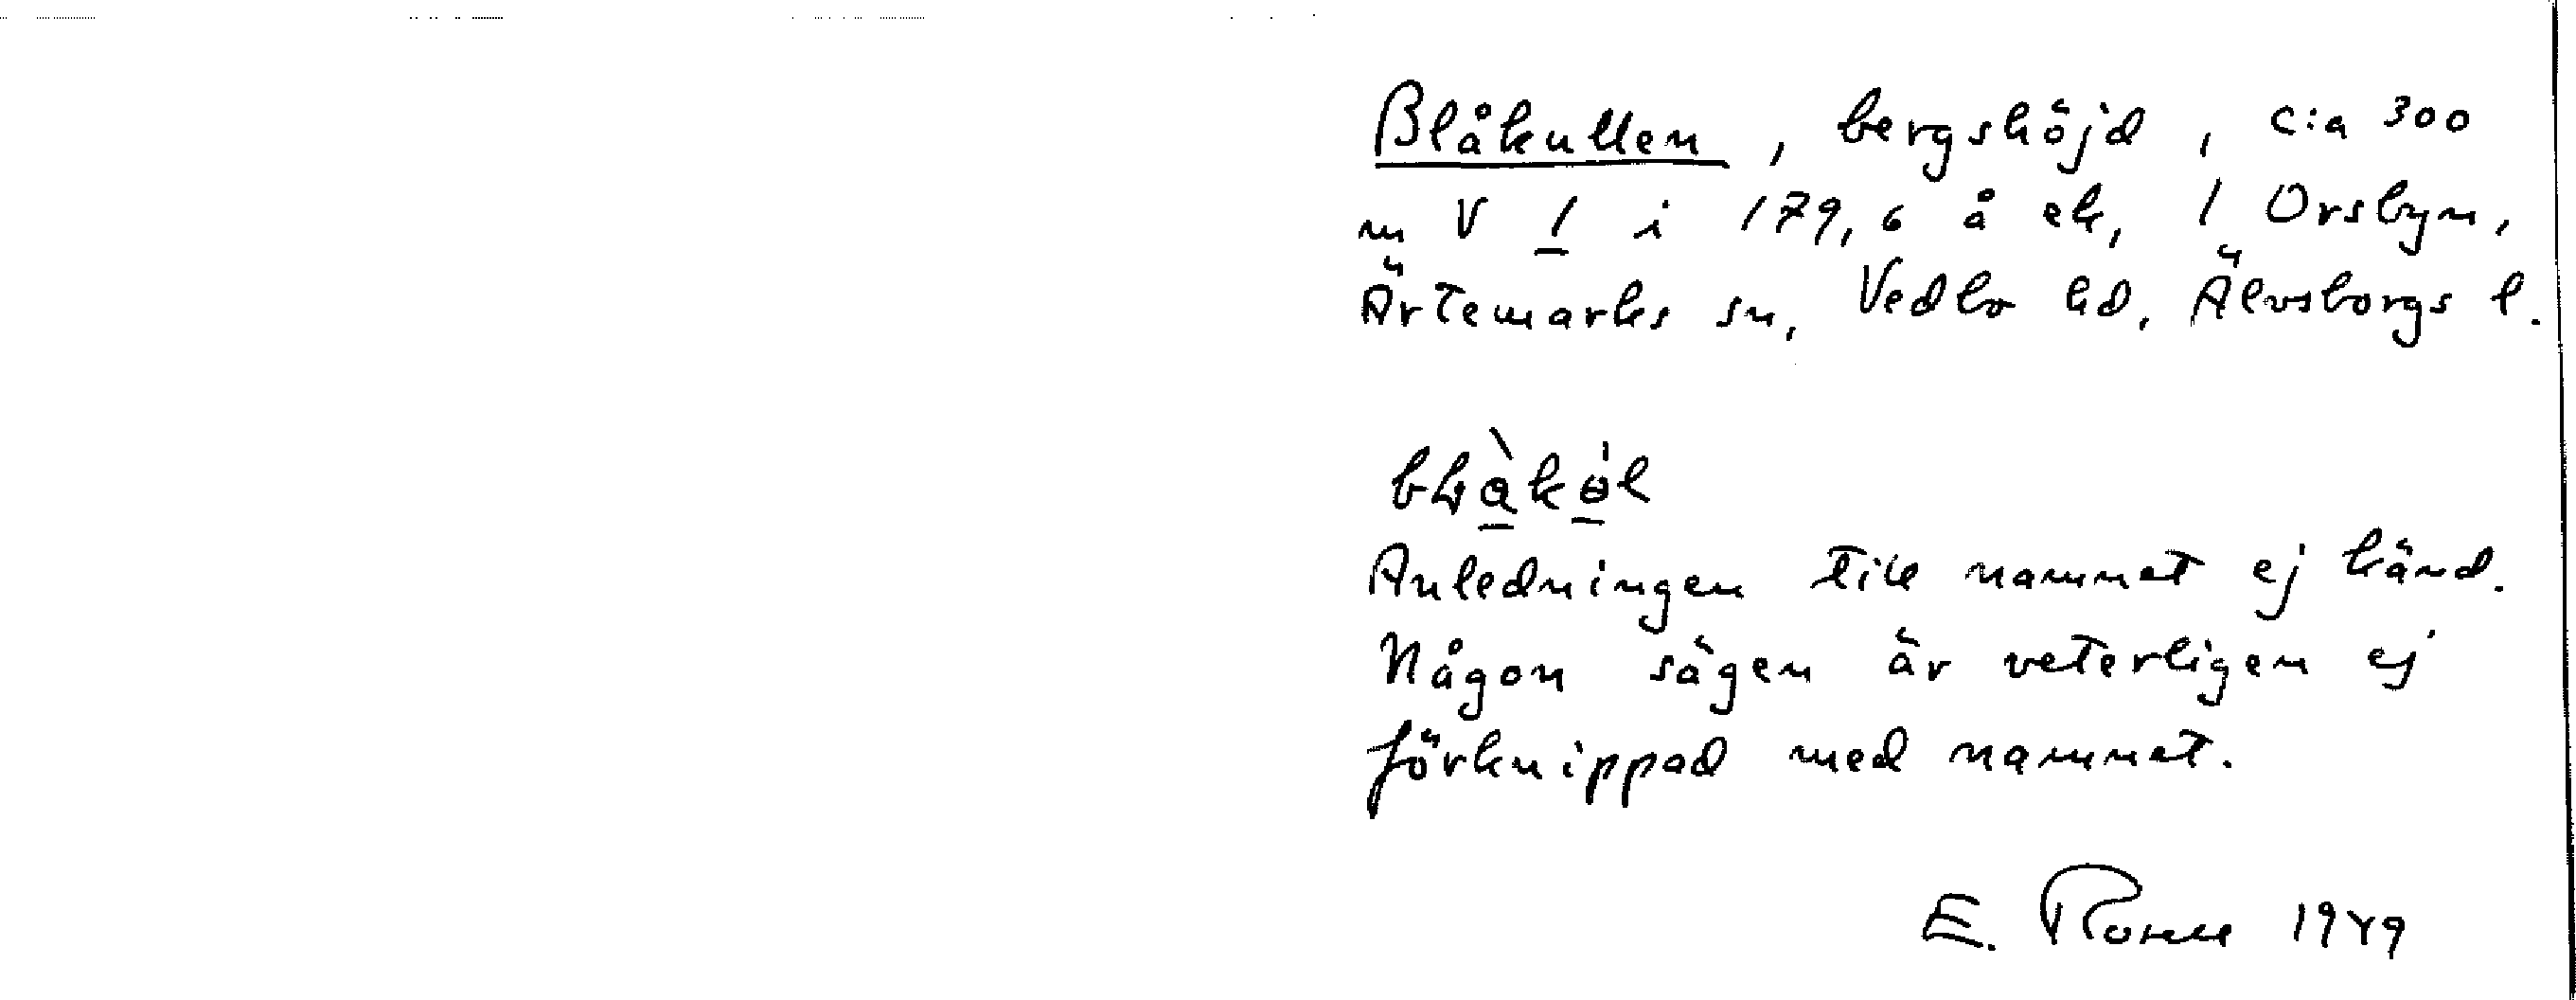 Blåkullen, bergshöjd, c:a 300
m V 1 i 179,6 å ek, 1 Orsbyn,
Ärtemarks sn, Vedbo hd, Älvsborgs l.
Anledningen till namnet ej känd.
Någon sägen är veterligen ej
förknippad med namnet.
E. 1949